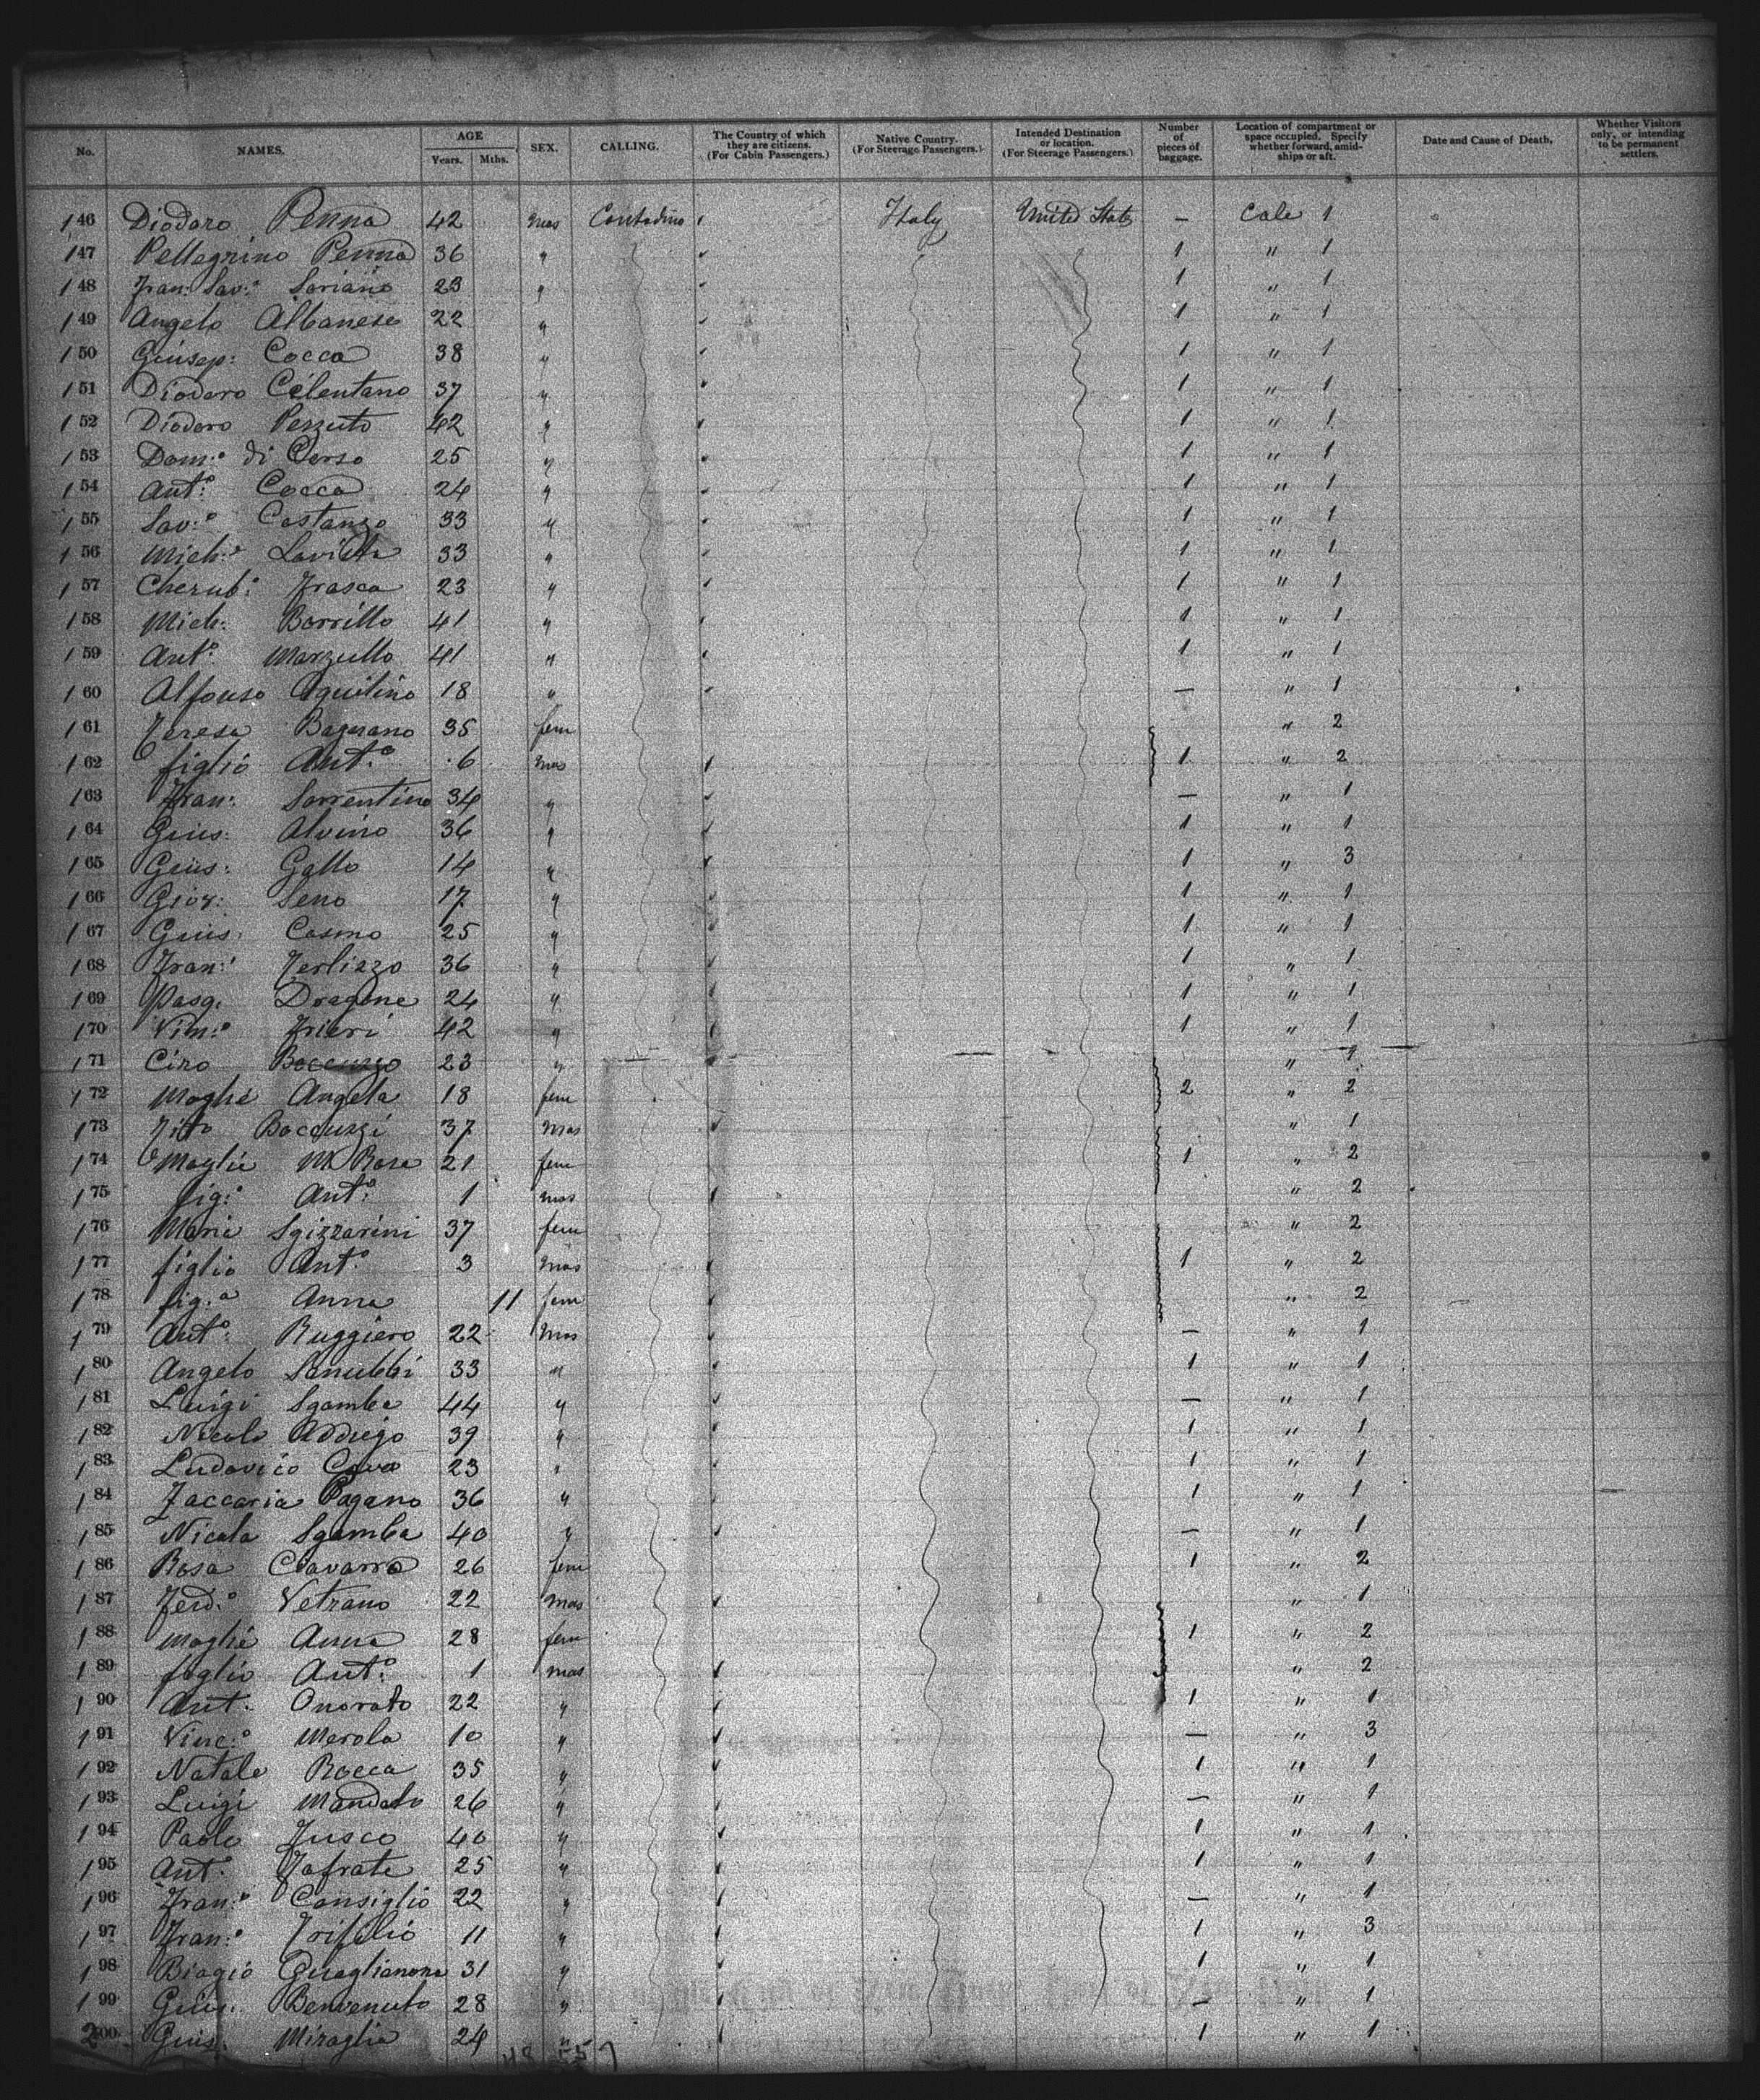 No. NAMES. AGE Years. Mths. SEX. CALLING. The Country of which they are citizens. (For Cabin Passengers.) Native Country. (For Steerage Passengers.) Intended Destination or location. (For Steerage Passengers.) Number of pieces of baggage. Location of compartment or space occupied. Specify whether forward, amidships or aft. Date and Cause of Death. Whether Visitors only, or intending to be permanent settlers.
146 Diodoro Penna 42 mas Contadino Italy United States — Cale 1
147 Pellegrino Penna 36 " 1 " 1
148 Fran: Sav:o Soriano 23 " 1 " 1
149 Angelo Albanese 22 " 1 " 1
150 Giusep: Cocca 38 " 1 " 1
151 Diodoro Celentano 37 " 1 " 1
152 Diodoro Pezzuto 42 " 1 " 1
153 Dom:o di Corso 25 " 1 " 1
154 Ant:o Cocca 24 " 1 " 1
155 Sav:o Costanzo 33 " 1 " 1
156 Mich:e Lavista 33 " 1 " 1
157 Cherub:o Frasca 23 " 1 " 1
158 Mich: Borrillo 41 " 1 " 1
159 Ant:o Marzullo 41 " 1 " 1
160 Alfonso Aquilino 18 " — " 1
161 Teresa Bagnano 35 fem " 2
162 figlio Ant:o 6 mas 1 " 2
163 Fran: Sorrentino 34 " — " 1
164 Gius: Alvino 36 " 1 " 1
165 Gius: Gallo 14 " 1 " 3
166 Giov: Seno 17 " 1 " 1
167 Gius: Cosmo 25 " 1 " 1
168 Fran: Terlizzo 36 " 1 " 1
169 Pasq. Dragone 24 " 1 " 1
170 Vin:o Frieri 42 " 1 " 1
171 Ciro Boccuzzo 23 " " 1
172 Moglie Angela 18 fem 2 " 2
173 Vito Boccuzzi 37 mas " 1
174 Moglie M. Rosa 21 fem 1 " 2
175 fig:o Ant:o 1 mas " 2
176 Maria Sgizzarini 37 fem " 2
177 figlio Ant:o 3 mas 1 " 2
178 fig:a Anna 11 fem " 2
179 Ant:o Ruggiero 22 mas — " 1
180 Angelo 33 " 1 " 1
181 Luigi Sgamba 44 " — " 1
182 Nicola Addiego 39 " 1 " 1
183 Ludovico Cava 23 " 1 " 1
184 Zaccaria Pagano 36 " 1 " 1
185 Nicola Sgamba 40 " — " 1
186 Rosa Ciavarra 26 fem 1 " 2
187 Ferd:o Vetrano 22 mas " 1
188 Moglie Anna 28 fem 1 " 2
189 figlio Ant:o 1 mas " 2
190 Ant: Onorato 22 " 1 " 1
191 Vinc:o Merola 10 " — " 3
192 Natale Rocca 35 " 1 " 1
193 Luigi Mandato 26 " — " 1
194 Paolo Fusco 40 " 1 " 1
195 Ant:o Jafrate 25 " 1 " 1
196 Fran:o Consiglio 22 " — " 1
197 Fran:o Trifilio 11 " 1 " 3
198 Biagio Quaglianone 31 " 1 " 1
199 Gius: Benvenuto 28 " — " 1
200 Gius: Miraglia 24 " 1 " 1